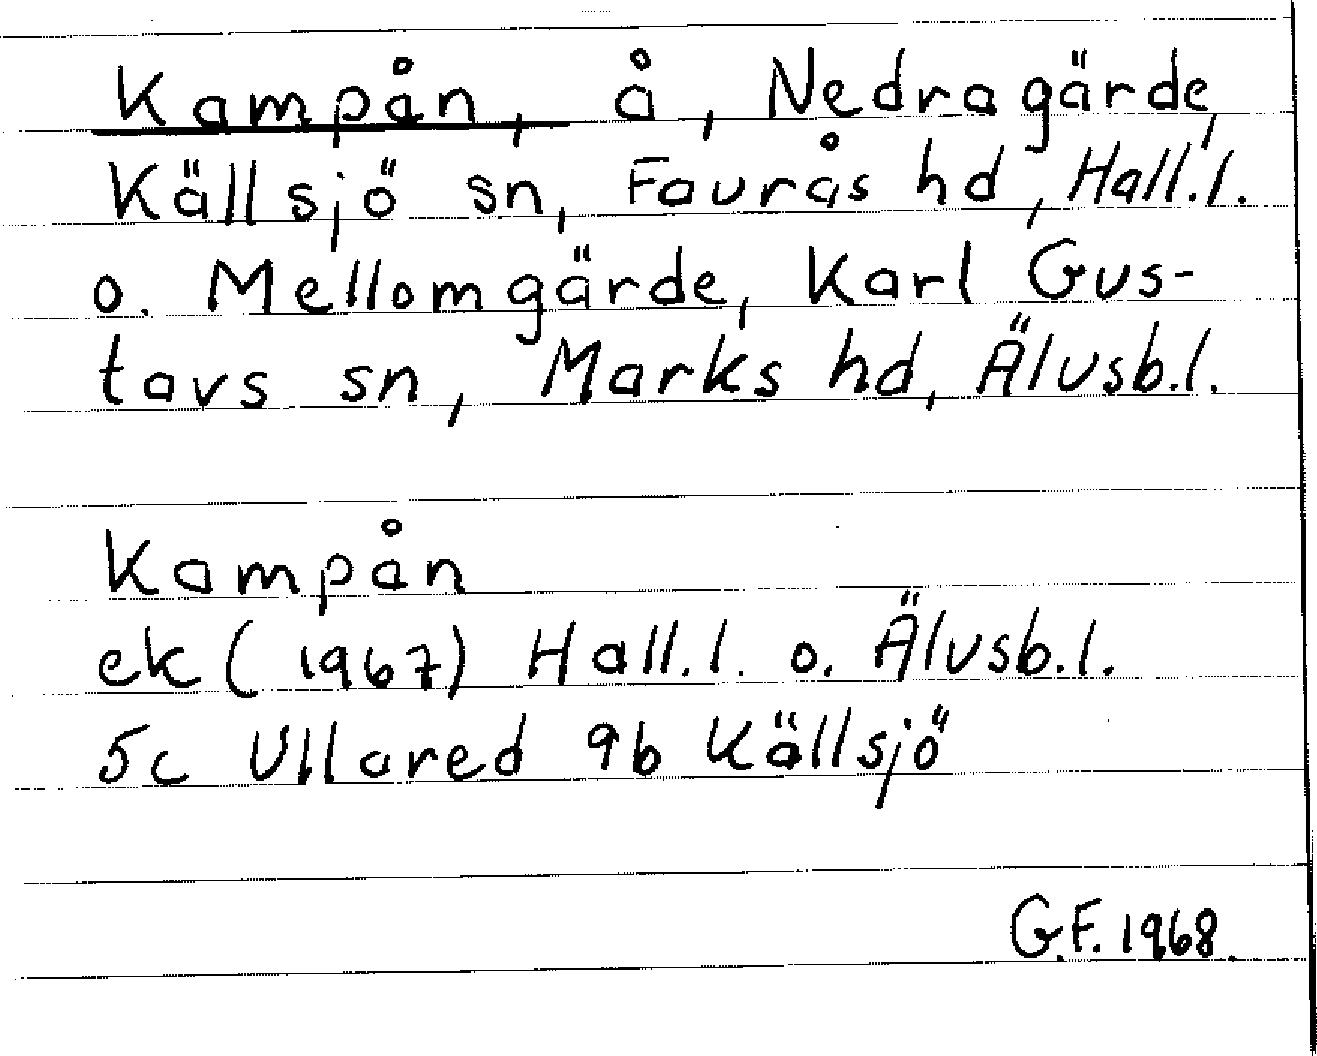 Kampån, å, Nedragärde,
Källsjö sn, Faurås hd, Hall.l.
o. Mellomgärde, Karl Gus-
tavs sn, Marks hd, Älvsb.l.
Kampån
ek (1967) Hall.l. o. Älvsb.l.
5c Ullared 9b Källsjö
G.F. 1968.